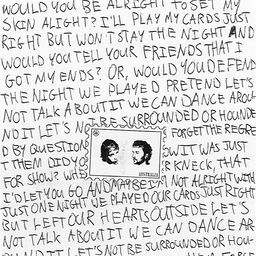 WOULD YOU BE ALRIGHT TO SET MY
SKIN ALIGHT? I'LL PLAY MY CARDS JUST
RIGHT BUT WON'T STAY THE NIGHT AND
WOULD YOU TELL YOUR FRIENDS THAT I
GOT MY ENDS? OR, WOULD YOU DEFEND
THE NIGHT WE PLAYED PRETEND LET'S
NOT TALK ABOUT IT WE CAN DANCE AROU-
ND IT LET'S NOT BE SURROUNDED OR HOUNDE
D BY QUESTION FORGET THE REGRE
T THEM DID YO W IT WAS JUST
FOR SHOW? W R KNECK, THAT
I'D LET YOU GO AND MAYBE I'M NOT ALRIGHT WITH
JUST ONE NIGHT WE PLAYED OUR CARDS JUST RIGHT
BUT LEFT OUR HEARTS OUTSIDE LET'S
NOT TALK ABOUT IT WE CAN DANCE AR
OUND IT LET'S NOT BE SURROUNDED OR HOU-
AUSTRALIA